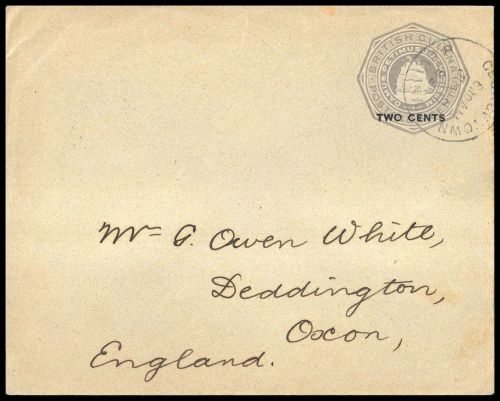 BRITISH GUIANA
DAMUS PETIMUSQUE VICISSIM
POSTAGE
TWO CENTS
Mr G. Owen White,
Deddington,
Oxon,
England.